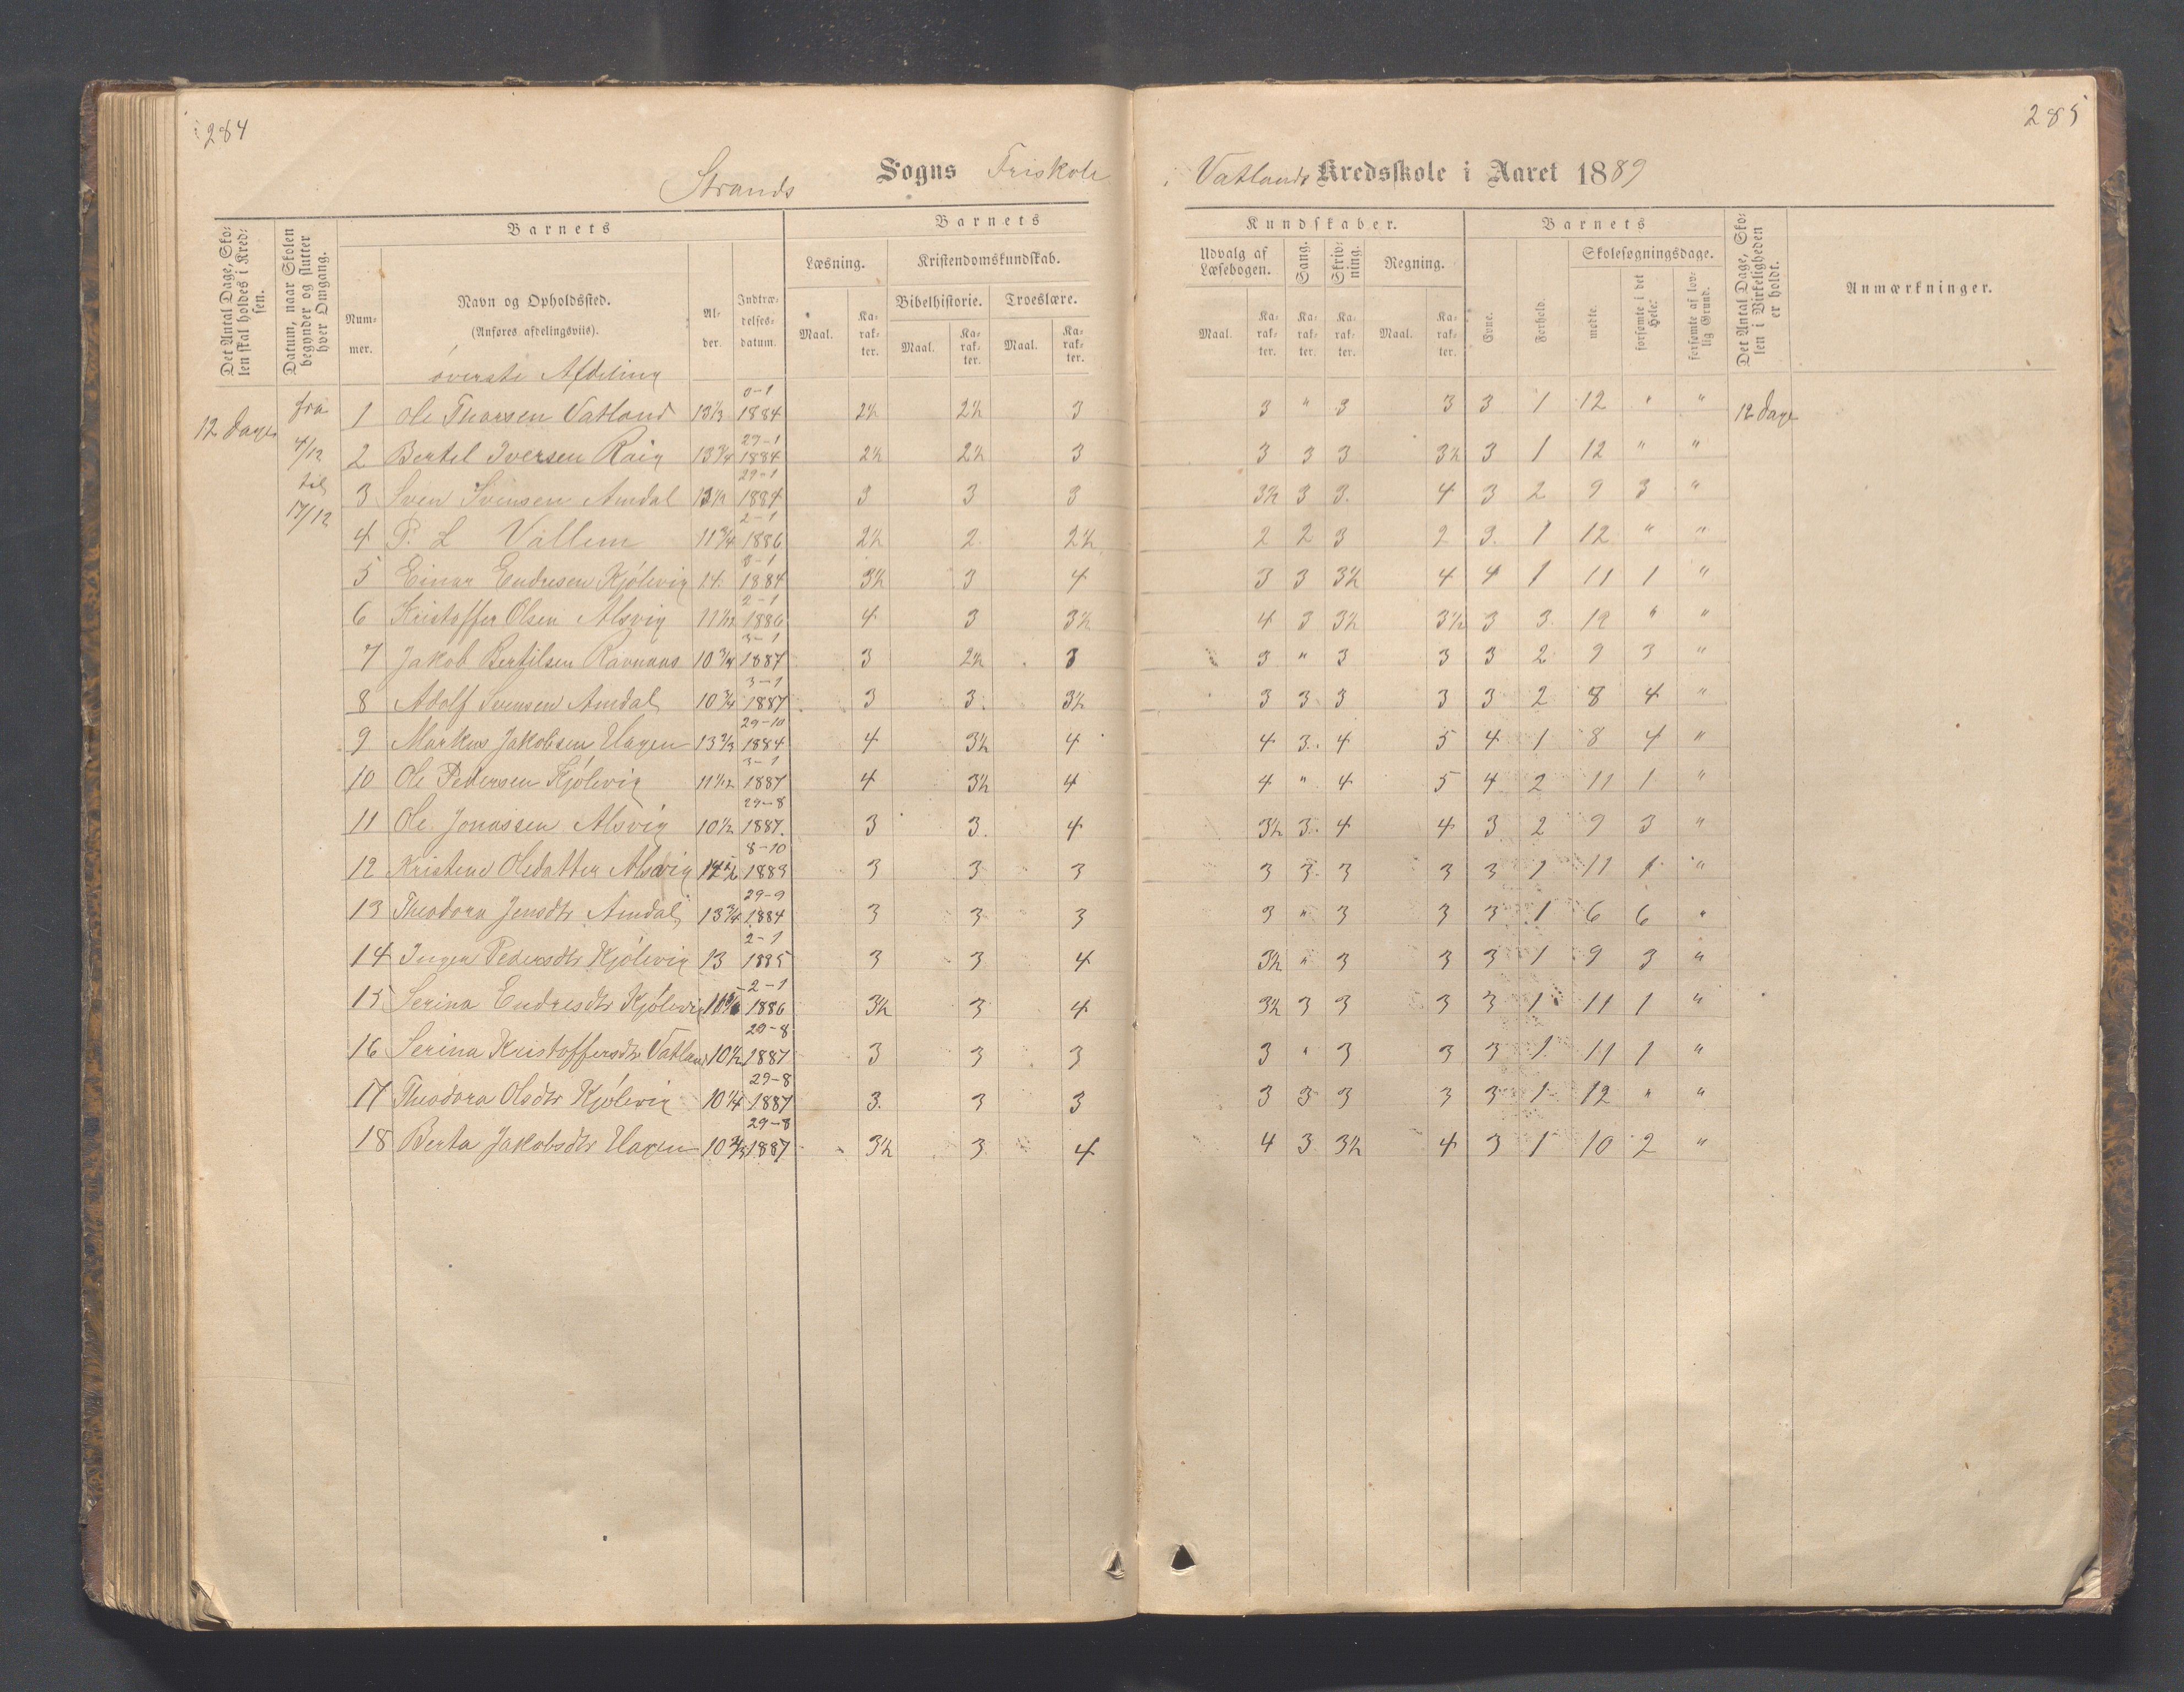 284
285
Strands Sogns Friskole i Vatlands Kredsskole i Aaret 1889
Det Antal Dage, Skolen skal holdes i Kredsen.
Datum, naar Skolen begynder og slutter hver Omgang.
Barnets
Nummer.
Navn og Opholdssted.
(Anføres afdelingsviis).
Alder.
Indtrædelsesdatum.
Barnets Kundskaber.
Læsning.
Kristendomskundskab.
Bibelhistorie.
Troeslære.
Udvalg af Læsebogen.
Sang.
Skrivning.
Regning.
Maal. Karakter. Maal. Karakter. Maal. Karakter. Maal. Karakter. Karakter. Karakter. Maal. Karakter.
Barnets
Evne.
Forhold.
Skolesøgningsdage.
mødte.
forsømte i det Hele.
forsømte af lovlig Grund.
Det Antal Dage, Skolen i Virkeligheden er holdt.
Anmærkninger.
øverste Afdeling
12 Dage
fra
4/12
til
17/12
1 Ole Thorsen Vatland 13 1/3 8-1 1884 2½ 2½ 3 3 " 3 3 3 1 12 " " 12 Dage
2 Bertel Iversen Raig 13 3/4 29-1 1884 2½ 2½ 3 3 3 3 3½ 3 1 12 " "
3 Sven Svensen Amdal 13½ 29-1 1884 3 3 3 3½ 3 3. 4 3 2 9 3 "
4 P. L Vallem 11 3/4 2-1 1886 2½ 2 2½ 2 2 3 2 3. 1 12 " "
5 Einar Endresen Kjølevig 14 8-1 1884 3½ 3 4 3 3 3½ 4 4 1 11 1 "
6 Kristoffer Olsen Alsvig 11 1/12 2-1 1886 4 3 3½ 4 3 3½ 3½ 3 3 12 " "
7 Jakob Bertilsen Ravnaas 10 3/4 3-1 1887 3 2½ 3 3 " 3 3 3 2 9 3 "
8 Adolf Svensen Amdal 10 3/4 3-1 1887 3 3. 3½ 3 3 3 3 3 2 8 4 "
9 Markus Jakobsen Hagen 13 2/3 29-10 1884 4 3½ 4 4 3. 4 5 4 1 8 4 "
10 Ole Pedersen Kjølevig 11 1/12 3-1 1887 4 3½ 4 4 " 4 5 4 2 11 1 "
11 Ole Jonassen Alsvig 10½ 29-8 1887. 3 3. 4 3½ 3. 4 4 3 2 9 3 "
12 Kristene Olsdatter Alsvig 8-10 1883 3 3 3 3 3. 3 3 3 1 11 1 "
13 Theodora Jensdtr Amdal 13 3/4 29-9 1884 3 3 3 3 " 3 3 3 1 6 6 "
14 Inger Pedersdtr Kjølevig 13 2-1 1885 3 3 4 3½ " 3 3 3 1 9 3 "
15 Serina Endresdtr Kjølevig 2-1 1886 3½ 3 4 3½ 3 3 3 3 1 11 1 "
16 Serina Kristoffersdtr Vatland 10½ 29-8 1887 3 3 3 3 " 3 3 3 1 11 1 "
17 Theodora Olsdtr Kjølevig 10 1/4 29-8 1887 3. 3 3 3 3 3 3 3 1 12 " "
18 Berta Jakobsdtr Hagen 10 2/3 29-8 1887 3½ 3 4 4 3 3½ 4 3 1 10 2 "